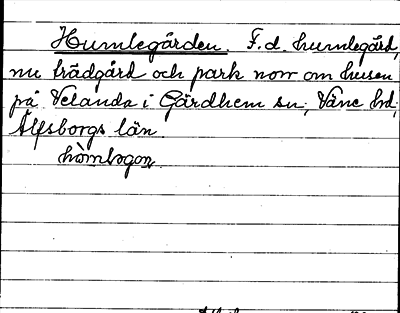 Humlegården. F.d. humlegård,
nu trädgård och park norr om husen
på Velanda i Gärdhem sn, Väne hd,
Älfsborgs län.